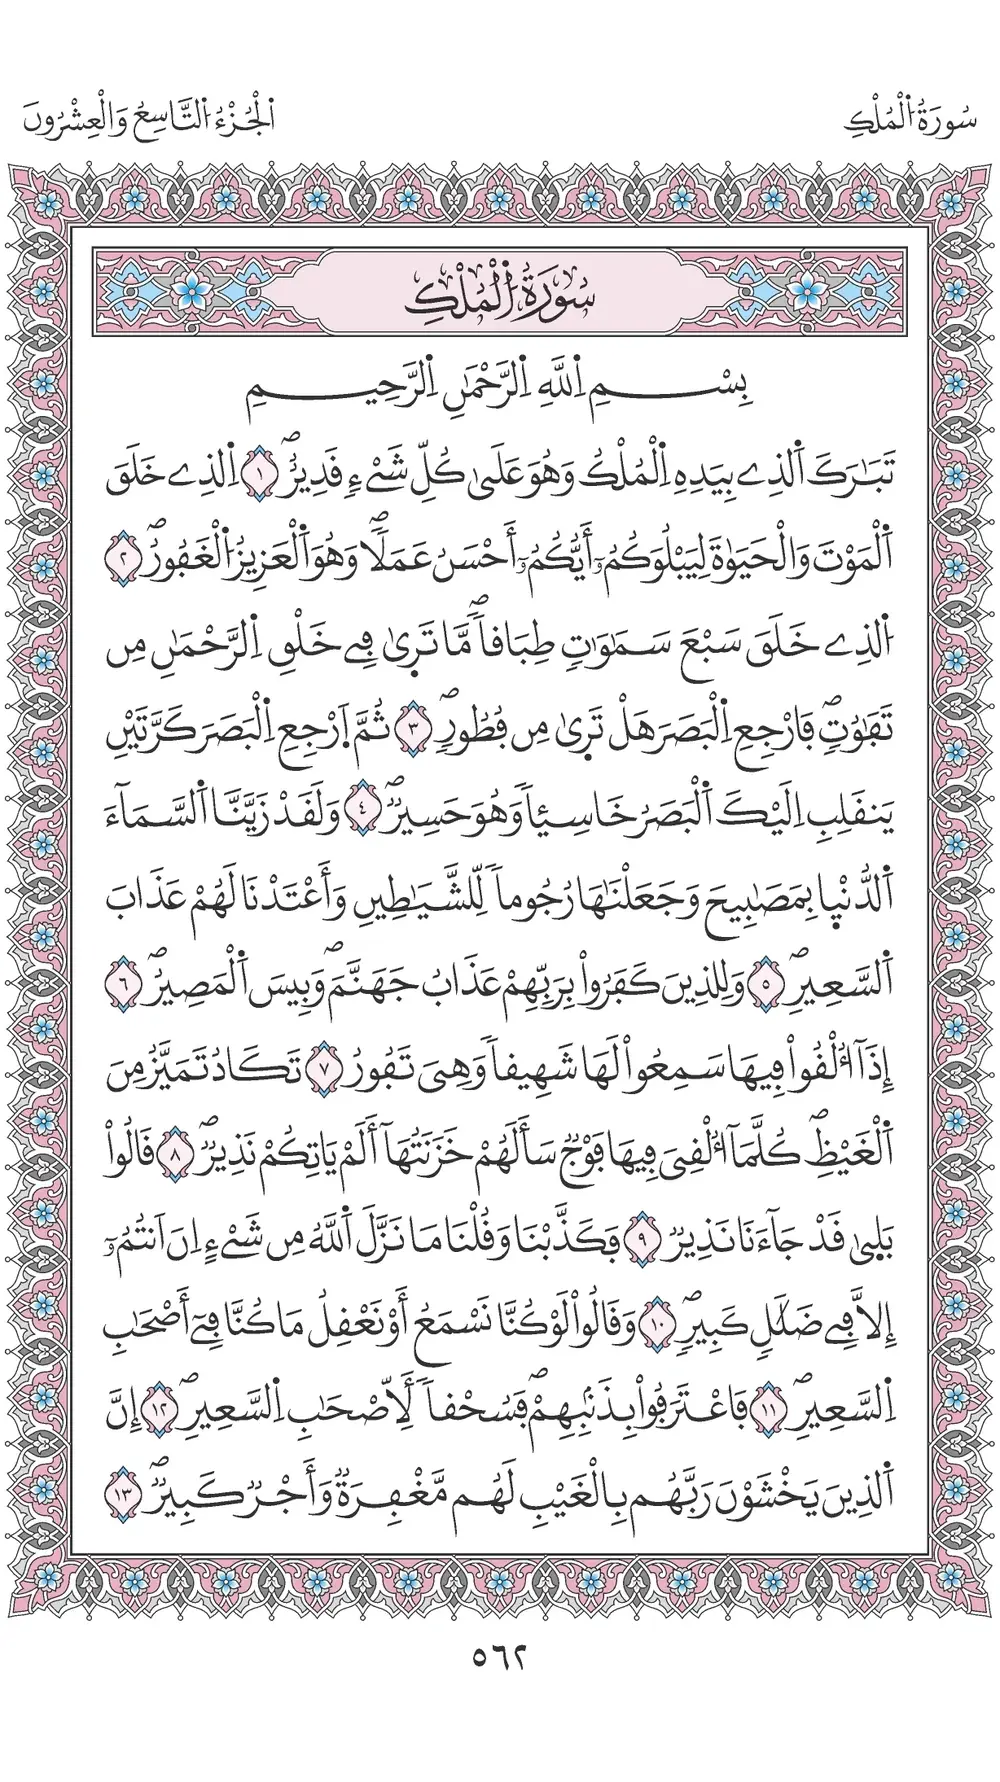 سُورَةُ اُ۬لْمُلْكِ
اَ۬لْجُزْءُ اُ۬لتَّاسِعُ وَالْعِشْرُونَ
سُورَةُ اُ۬لْمُلْكِ
بِسْمِ اِ۬للَّهِ اِ۬لرَّحْمَٰنِ اِ۬لرَّحِيمِ
تَبَٰرَكَ اَ۬لذِے بِيَدِهِ اِ۬لْمُلْكُ وَهُوَ عَلَىٰ كُلِّ شَےْءٖ قَدِيرٌۖ ١ اِ۬لذِے خَلَقَ
اَ۬لْمَوْتَ وَالْحَيَوٰةَ لِيَبْلُوَكُمُۥٓ أَيُّكُمُۥٓ أَحْسَنُ عَمَلاٗۖ وَهُوَ اَ۬لْعَزِيزُ اُ۬لْغَفُورُۖ ٢
اُ۬لذِے خَلَقَ سَبْعَ سَمَٰوَٰتٖ طِبَاقاٗۖ مَّا تَر۪ىٰ فِے خَلْقِ اِ۬لرَّحْمَٰنِ مِن
تَفَٰوُتٖۖ فَارْجِعِ اِ۬لْبَصَرَ هَلْ تَر۪ىٰ مِن فُطُورٖۖ ٣ ثُمَّ اَ۪رْجِعِ اِ۬لْبَصَرَ كَرَّتَيْنِ
يَنقَلِبِ اِلَيْكَ اَ۬لْبَصَرُ خَاسِئاٗ وَهُوَ حَسِيرٌۖ ٤ وَلَقَدْ زَيَّنَّا اَ۬لسَّمَآءَ
اَ۬لدُّنْي۪ا بِمَصَٰبِيحَ وَجَعَلْنَٰهَا رُجُوماٗ لِّلشَّيَٰطِينِ وَأَعْتَدْنَا لَهُمْ عَذَابَ
اَ۬لسَّعِيرِۖ ٥ وَلِلذِينَ كَفَرُواْ بِرَبِّهِمْ عَذَابُ جَهَنَّمَۖ وَبِيسَ اَ۬لْمَصِيرُۖ ٦
إِذَآ أُلْقُواْ فِيهَا سَمِعُواْ لَهَا شَهِيقاٗ وَهِيَ تَفُورُ ٧ تَكَادُ تَمَيَّزُ مِنَ
اَ۬لْغَيْظِۖ كُلَّمَآ أُلْقِيَ فِيهَا فَوْجٞ سَأَلَهُمْ خَزَنَتُهَآ أَلَمْ يَاتِكُمْ نَذِيرٌۖ ٨ قَالُواْ
بَل۪ىٰ قَدْ جَآءَنَا نَذِيرٞ ٩ فَكَذَّبْنَا وَقُلْنَا مَا نَزَّلَ اَ۬للَّهُ مِن شَےْءٍ اِنَ اَنتُمُۥٓ
إِلَّا فِے ضَلَٰلٖ كَبِيرٖۖ ١٠ وَقَالُواْ لَوْ كُنَّا نَسْمَعُ أَوْ نَعْقِلُ مَا كُنَّا فِےٓ أَصْحَٰبِ
اِ۬لسَّعِيرِۖ ١١ فَاعْتَرَفُواْ بِذَنۢبِهِمْۖ فَسُحْقاٗ لِّأَصْحَٰبِ اِ۬لسَّعِيرِۖ ١٢ إِنَّ
اَ۬لذِينَ يَخْشَوْنَ رَبَّهُم بِالْغَيْبِ لَهُم مَّغْفِرَةٞ وَأَجْرٞ كَبِيرٞۖ ١٣
٥٦٢